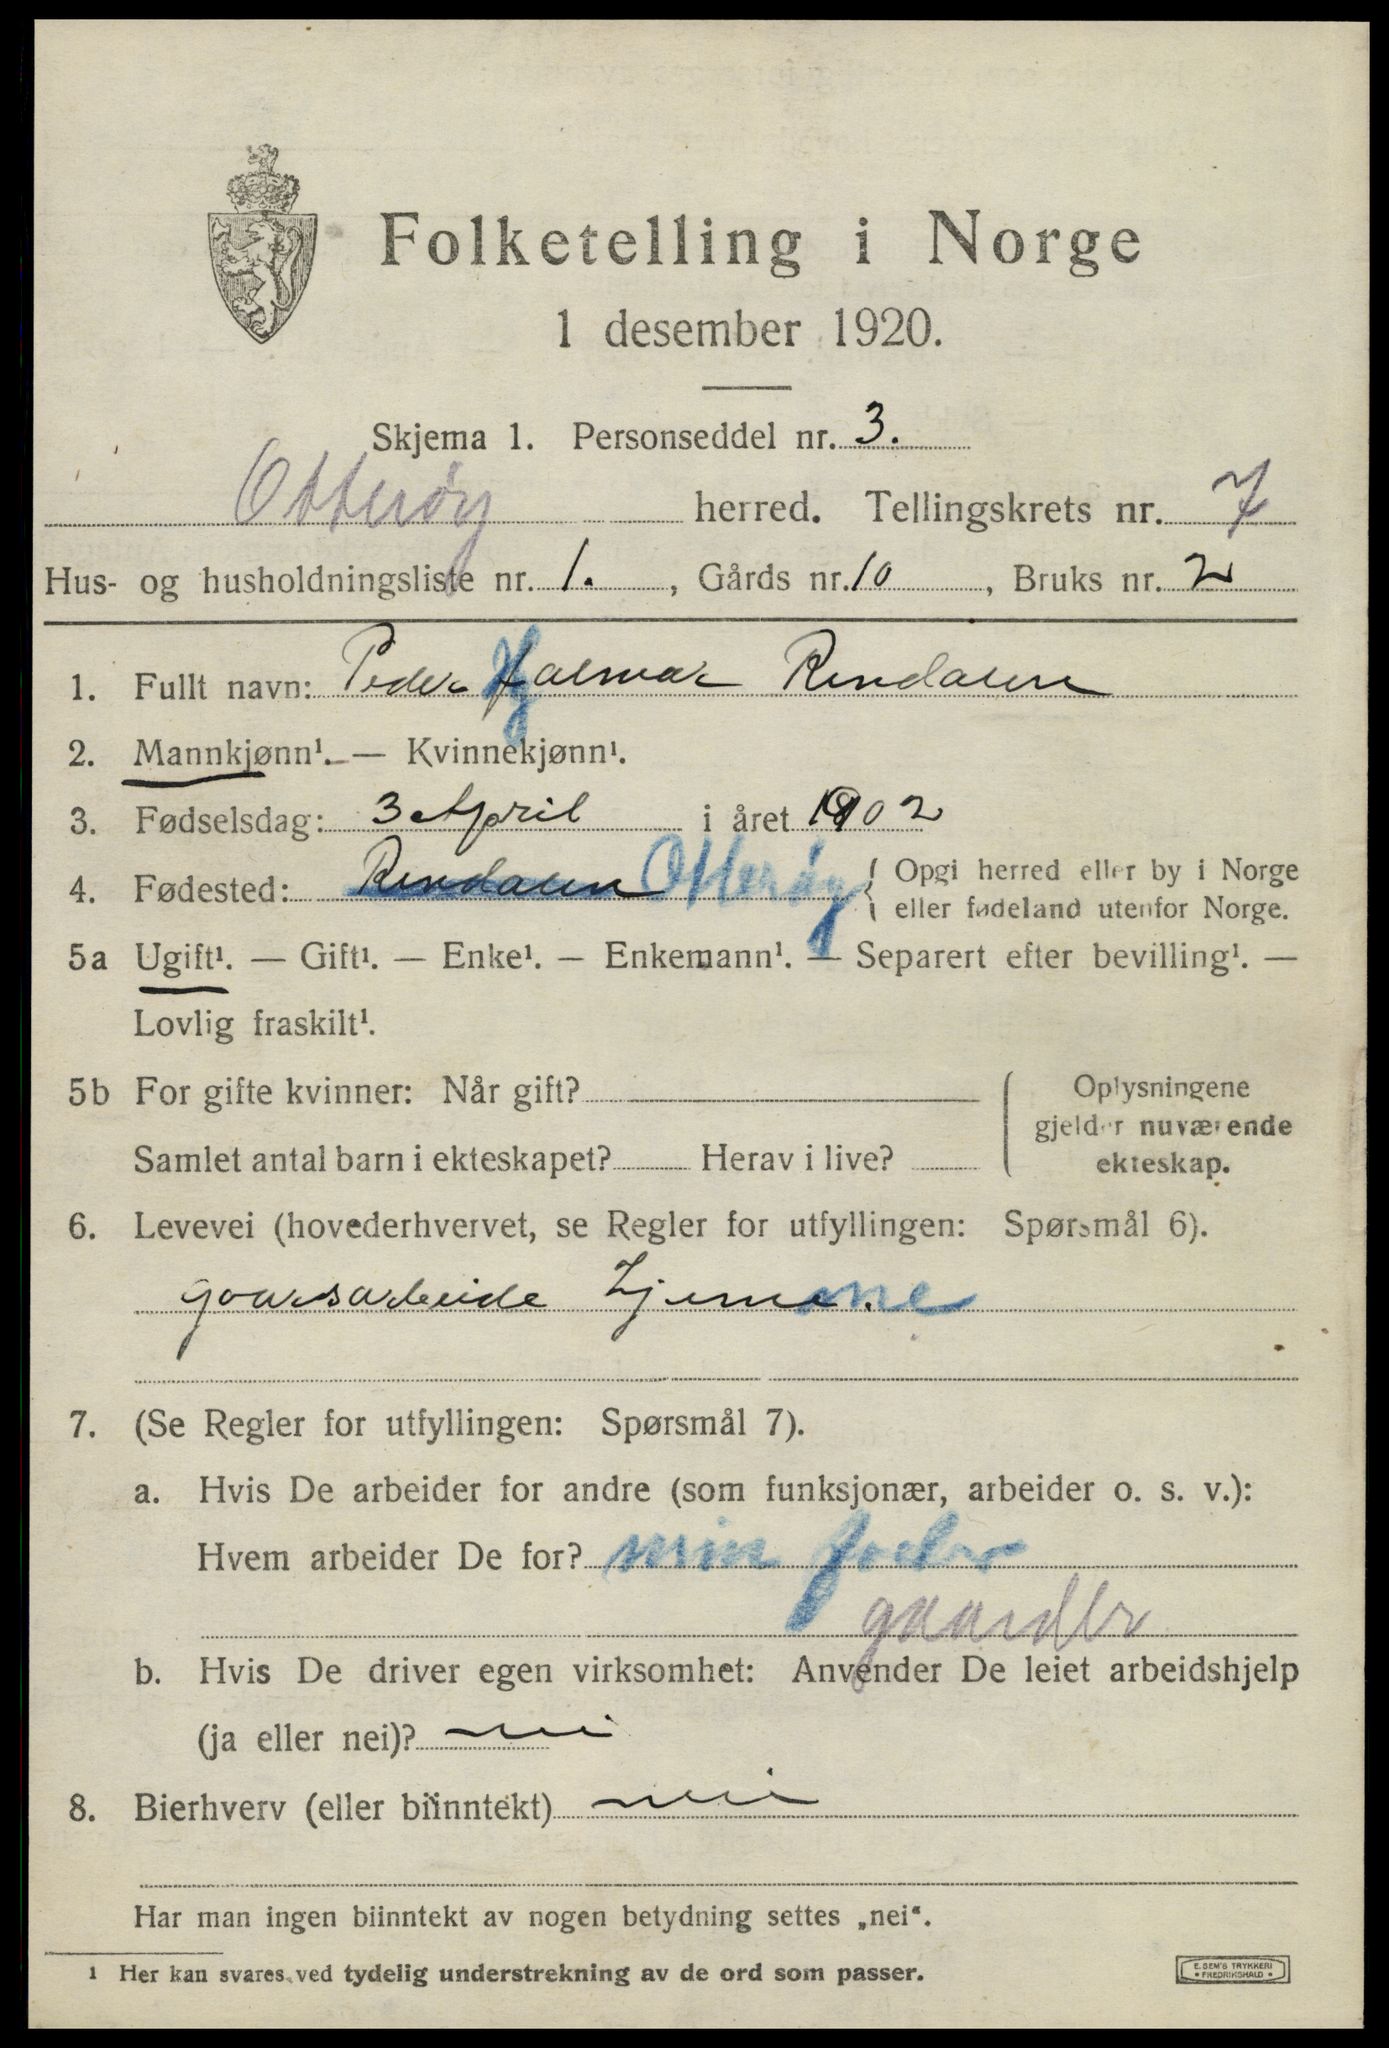 Folketelling i Norge
1 desember 1920.
Skjema 1. Personseddel nr. 3.
Otterøy herred. Tellingskrets nr. 7
Hus- og husholdningsliste nr. 1. , Gårds nr. 10 , Bruks nr. 2
1. Fullt navn: Peder Hjalmar Rendalen
2. Mannkjønn¹. — Kvinnekjønn¹.
3. Fødselsdag: 3 April i året 1902
4. Fødested: Rendalen Otterøy { Opgi herred eller by i Norge
eller fødeland utenfor Norge.
5a Ugift¹. — Gift¹. — Enke¹. — Enkemann¹. — Separert efter bevilling¹. —
Lovlig fraskilt¹.
5b For gifte kvinner: Når gift?
Samlet antal barn i ekteskapet? Herav i live?
Oplysningene
gjelder nuværende
ekteskap.
6. Levevei (hovederhvervet, se Regler for utfyllingen: Spørsmål 6).
gaardsarbeide hjemme
7. (Se Regler for utfyllingen: Spørsmål 7).
a. Hvis De arbeider for andre (som funksjonær, arbeider o. s. v.):
Hvem arbeider De for? min fader
gaardbr
b. Hvis De driver egen virksomhet: Anvender De leiet arbeidshjelp
(ja eller nei)? nei
8. Bierhverv (eller biinntekt) nei
Har man ingen biinntekt av nogen betydning settes „nei“.
1 Her kan svares ved tydelig understrekning av de ord som passer.
E. SEM'S TRYKKERI
• FREDRIKSHALD •